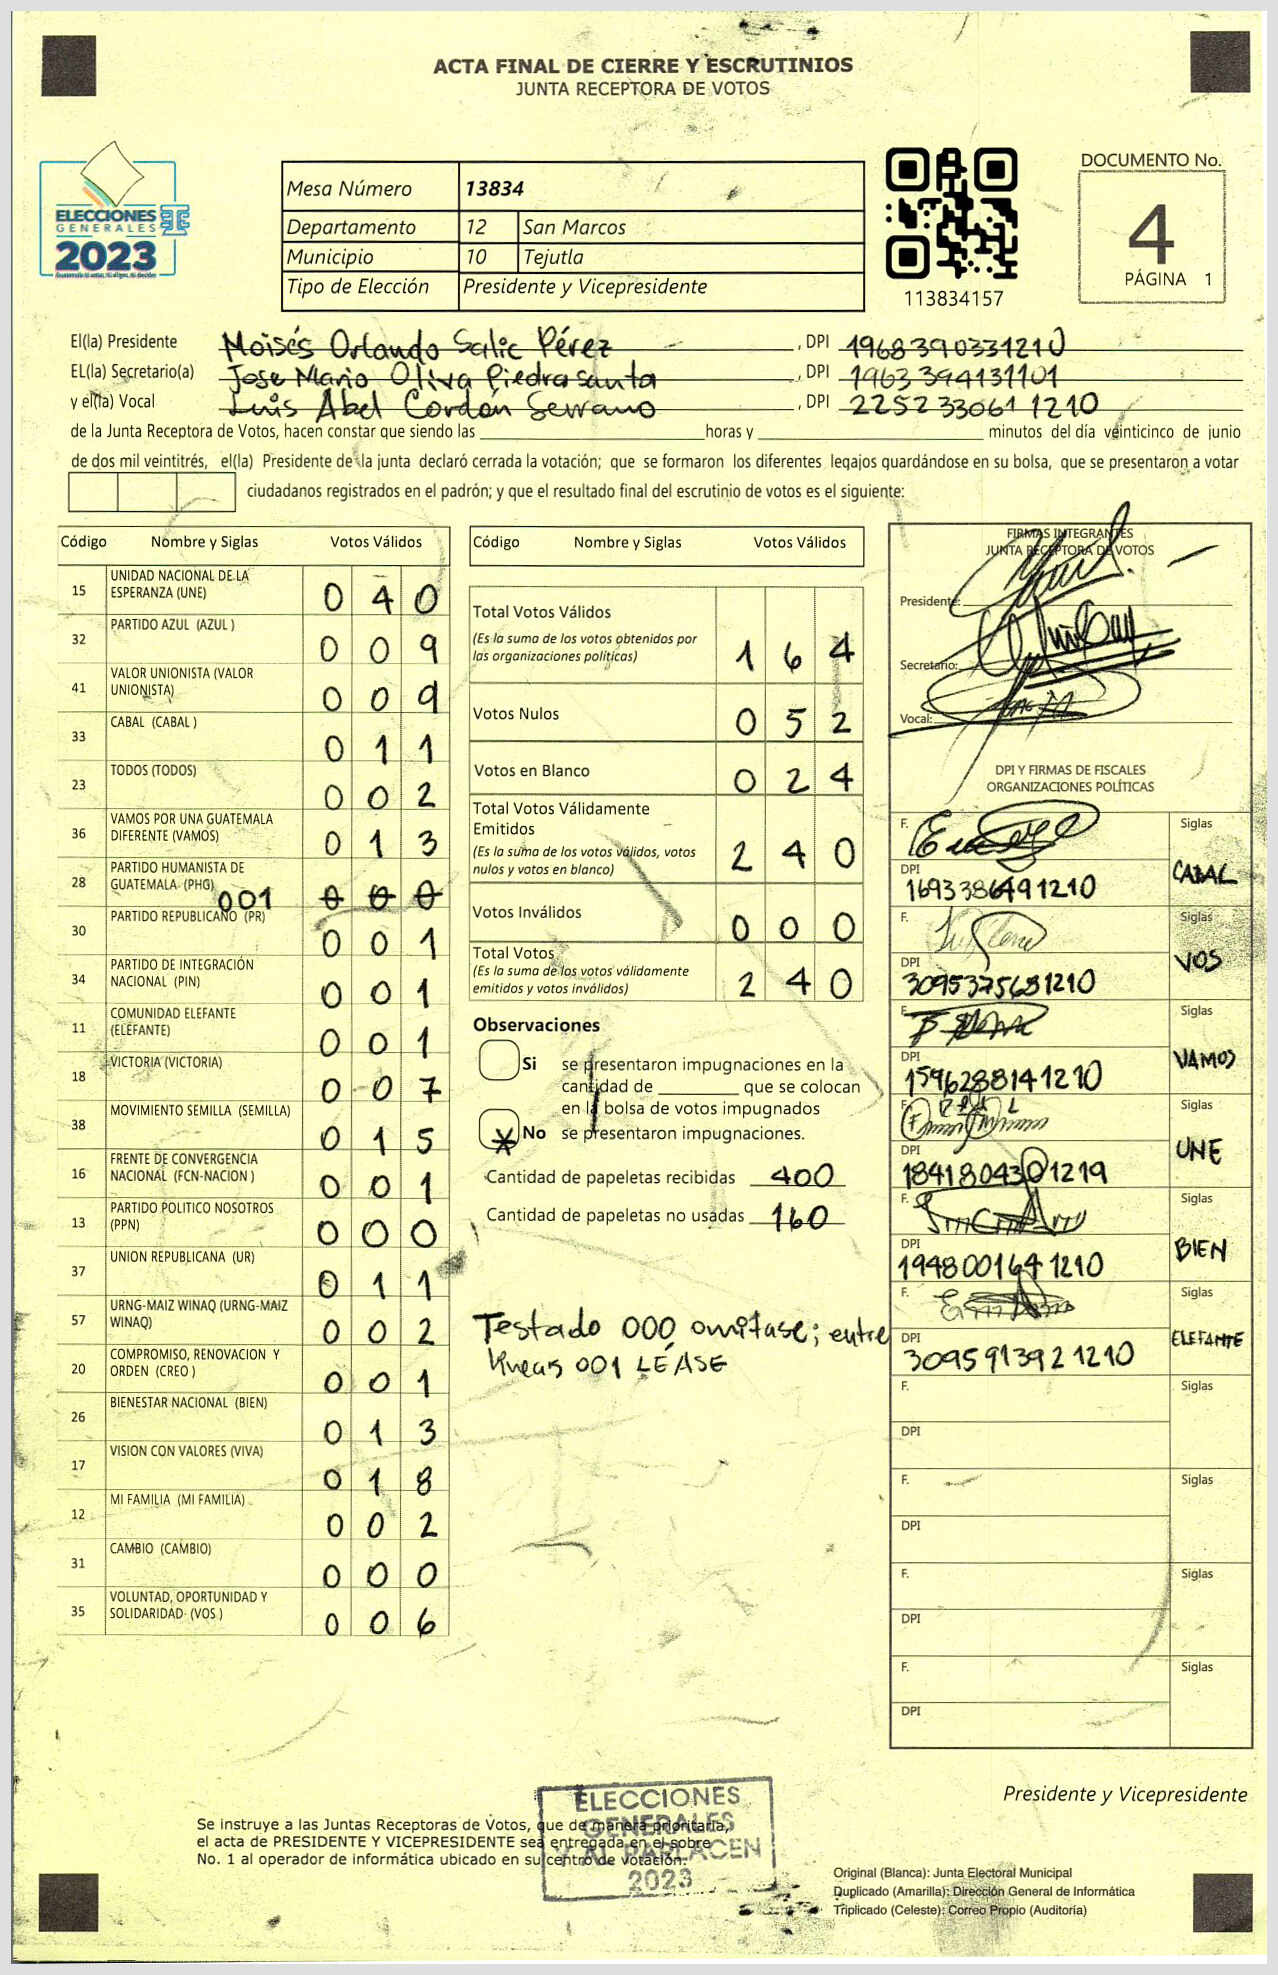 ACTA FINAL DE CIERRE Y ESCRUTINIOS
JUNTA RECEPTORA DE VOTOS
ELECCIONES
GENERALES
2023
Mesa Número 13834
Departamento 12 San Marcos
Municipio 10 Tejutla
Tipo de Elección Presidente y Vicepresidente
113834157
DOCUMENTO No.
4
PÁGINA 1
El(la) Presidente Moisés Orlando Salic Pérez, DPI 1968390331210
EL(la) Secretario(a) Jose Mario Oliva Piedrasanta, DPI 1963394131101
y el(la) Vocal Luis Abel Cordón Serrano, DPI 2252330611210
de la Junta Receptora de Votos, hacen constar que siendo las horas y minutos del día veinticinco de junio
de dos mil veintitrés, el(la) Presidente de la junta declaró cerrada la votación; que se formaron los diferentes legajos guardándose en su bolsa, que se presentaron a votar
ciudadanos registrados en el padrón; y que el resultado final del escrutinio de votos es el siguiente:
Código Nombre y Siglas Votos Válidos
15 UNIDAD NACIONAL DE LA
ESPERANZA (UNE) 0 4 0
32 PARTIDO AZUL (AZUL ) 0 0 9
41 VALOR UNIONISTA (VALOR
UNIONISTA) 0 0 9
33 CABAL (CABAL ) 0 1 1
23 TODOS (TODOS) 0 0 2
36 VAMOS POR UNA GUATEMALA
DIFERENTE (VAMOS) 0 1 3
28 PARTIDO HUMANISTA DE
GUATEMALA (PHG) 001 0 0 0
30 PARTIDO REPUBLICANO (PR) 0 0 1
34 PARTIDO DE INTEGRACIÓN
NACIONAL (PIN) 0 0 1
11 COMUNIDAD ELEFANTE
(ELEFANTE) 0 0 1
18 VICTORIA (VICTORIA) 0 0 7
38 MOVIMIENTO SEMILLA (SEMILLA) 0 1 5
16 FRENTE DE CONVERGENCIA
NACIONAL (FCN-NACION ) 0 0 1
13 PARTIDO POLITICO NOSOTROS
(PPN) 0 0 0
37 UNION REPUBLICANA (UR) 0 1 1
57 URNG-MAIZ WINAQ (URNG-MAIZ
WINAQ) 0 0 2
20 COMPROMISO, RENOVACION Y
ORDEN (CREO ) 0 0 1
26 BIENESTAR NACIONAL (BIEN) 0 1 3
17 VISION CON VALORES (VIVA) 0 1 8
12 MI FAMILIA (MI FAMILIA) 0 0 2
31 CAMBIO (CAMBIO) 0 0 0
35 VOLUNTAD, OPORTUNIDAD Y
SOLIDARIDAD (VOS ) 0 0 6
Código Nombre y Siglas Votos Válidos
Total Votos Válidos
(Es la suma de los votos obtenidos por
las organizaciones políticas) 1 6 4
Votos Nulos 0 5 2
Votos en Blanco 0 2 4
Total Votos Válidamente
Emitidos
(Es la suma de los votos válidos, votos
nulos y votos en blanco) 2 4 0
Votos Inválidos 0 0 0
Total Votos
(Es la suma de los votos válidamente
emitidos y votos inválidos) 2 4 0
Observaciones
Si se presentaron impugnaciones en la
cantidad de que se colocan
en la bolsa de votos impugnados
No se presentaron impugnaciones.
Cantidad de papeletas recibidas 400
Cantidad de papeletas no usadas 160
Testado 000 omitase; entre
lineas 001 LÉASE
FIRMAS INTEGRANTES
JUNTA RECEPTORA DE VOTOS
Presidente:
Secretario:
Vocal:
DPI Y FIRMAS DE FISCALES
ORGANIZACIONES POLÍTICAS
F. Siglas
DPI 1693386491210 CABAL
F. Siglas
DPI 3095375681210 VOS
F. Siglas
DPI 1596288141210 VAMOS
F. Siglas
DPI 1841804301219 UNE
F. Siglas
DPI 1948001641210 BIEN
F. Siglas
DPI 3095913921210 ELEFANTE
F. Siglas
DPI
F. Siglas
DPI
F. Siglas
DPI
F. Siglas
DPI
Presidente y Vicepresidente
Se instruye a las Juntas Receptoras de Votos, que de manera prioritaria,
el acta de PRESIDENTE Y VICEPRESIDENTE sea entregada en el sobre
No. 1 al operador de informática ubicado en su centro de votación.
ELECCIONES
GENERALES
Y AL PARLACEN
2023
Original (Blanca): Junta Electoral Municipal
Duplicado (Amarilla): Dirección General de Informática
Triplicado (Celeste): Correo Propio (Auditoría)